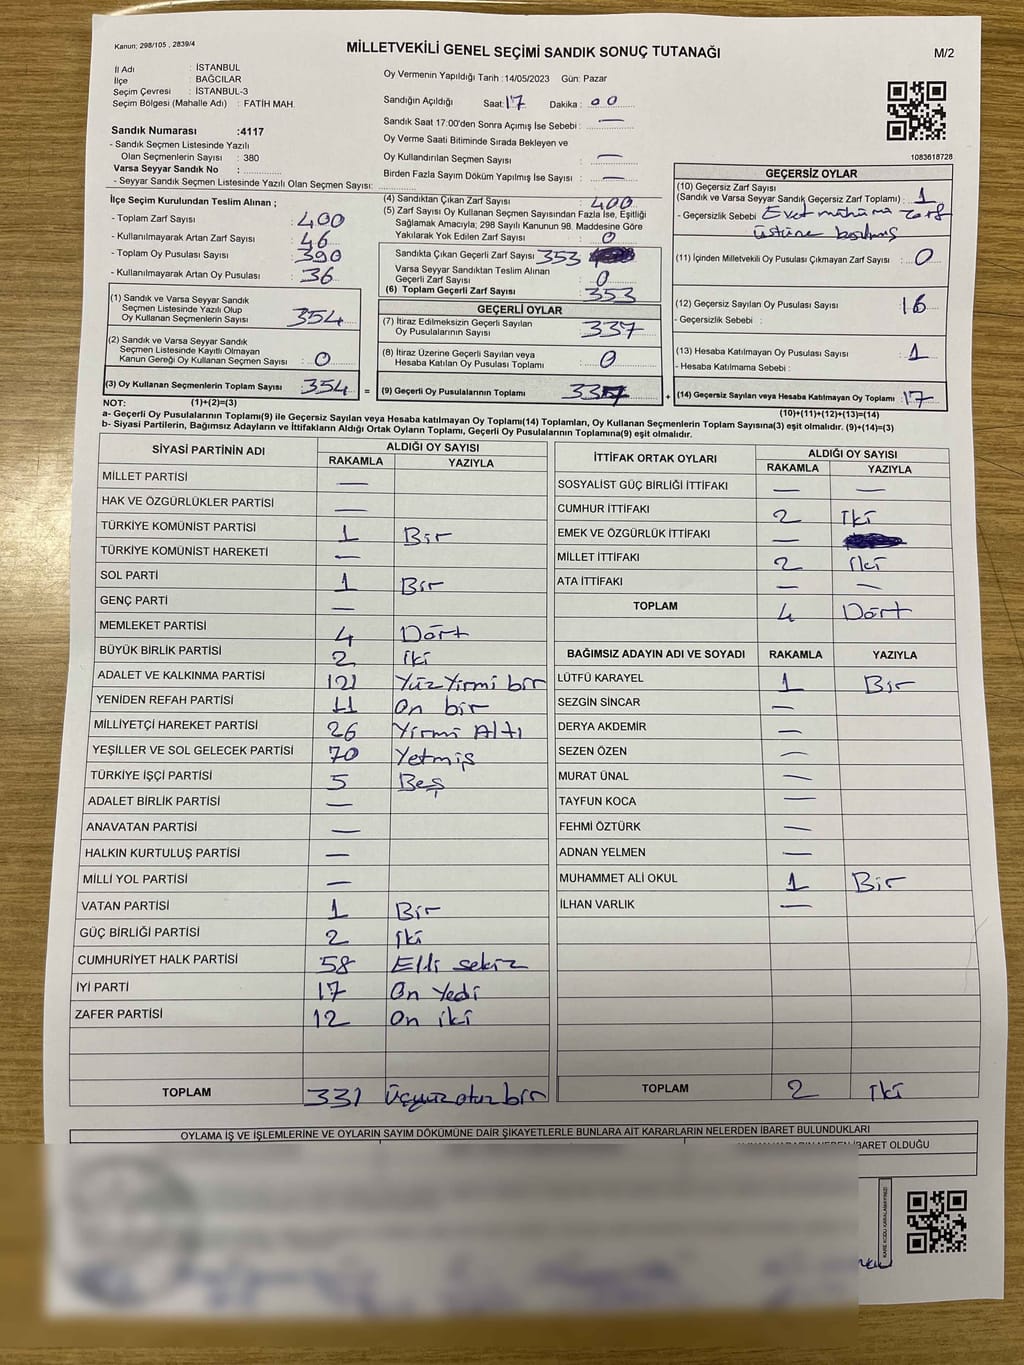 Kanun; 298/105 , 2839/4
MİLLETVEKİLİ GENEL SEÇİMİ SANDIK SONUÇ TUTANAĞI
M/2
İl Adı : İSTANBUL
İlçe : BAĞCILAR
Seçim Çevresi : İSTANBUL-3
Seçim Bölgesi (Mahalle Adı) : FATİH MAH.
Sandık Numarası :4117
- Sandık Seçmen Listesinde Yazılı
Olan Seçmenlerin Sayısı : 380
Varsa Seyyar Sandık No :
- Seyyar Sandık Seçmen Listesinde Yazılı Olan Seçmen Sayısı:
Oy Vermenin Yapıldığı Tarih :14/05/2023 Gün: Pazar
Sandığın Açıldığı Saat: 17 Dakika : 00
Sandık Saat 17:00'den Sonra Açımış İse Sebebi : —
Oy Verme Saati Bitiminde Sırada Bekleyen ve
Oy Kullandırılan Seçmen Sayısı : —
Birden Fazla Sayım Döküm Yapılmış İse Sayısı : —
1083618728
İlçe Seçim Kurulundan Teslim Alınan ;
- Toplam Zarf Sayısı : 400
- Kullanılmayarak Artan Zarf Sayısı : 46
- Toplam Oy Pusulası Sayısı : 390
- Kullanılmayarak Artan Oy Pusulası : 36
(1) Sandık ve Varsa Seyyar Sandık
Seçmen Listesinde Yazılı Olup
Oy Kullanan Seçmenlerin Sayısı : 354
(2) Sandık ve Varsa Seyyar Sandık
Seçmen Listesinde Kayıtlı Olmayan
Kanun Gereği Oy Kullanan Seçmen Sayısı : 0
(3) Oy Kullanan Seçmenlerin Toplam Sayısı : 354 =
(4) Sandıktan Çıkan Zarf Sayısı : 400
(5) Zarf Sayısı Oy Kullanan Seçmen Sayısından Fazla İse, Eşitliği
Sağlamak Amacıyla; 298 Sayılı Kanunun 98. Maddesine Göre
Yakılarak Yok Edilen Zarf Sayısı : 0
Sandıkta Çıkan Geçerli Zarf Sayısı : 353
Varsa Seyyar Sandıktan Teslim Alınan
Geçerli Zarf Sayısı : 0
(6) Toplam Geçerli Zarf Sayısı : 353
GEÇERLİ OYLAR
(7) İtiraz Edilmeksizin Geçerli Sayılan
Oy Pusulalarının Sayısı : 337
(8) İtiraz Üzerine Geçerli Sayılan veya
Hesaba Katılan Oy Pusulası Toplamı : 0
(9) Geçerli Oy Pusulalarının Toplamı : 337 +
GEÇERSİZ OYLAR
(10) Geçersiz Zarf Sayısı
(Sandık ve Varsa Seyyar Sandık Geçersiz Zarf Toplamı) : 1
- Geçersizlik Sebebi : Evet mühürü zarf
üstüne basılmış
(11) İçinden Milletvekili Oy Pusulası Çıkmayan Zarf Sayısı : 0
(12) Geçersiz Sayılan Oy Pusulası Sayısı : 16
- Geçersizlik Sebebi :
(13) Hesaba Katılmayan Oy Pusulası Sayısı : 1
- Hesaba Katılmama Sebebi :
(14) Geçersiz Sayılan veya Hesaba Katılmayan Oy Toplamı : 17
NOT: (1)+(2)=(3) (10)+(11)+(12)+(13)=(14)
a- Geçerli Oy Pusulalarının Toplamı(9) ile Geçersiz Sayılan veya Hesaba katılmayan Oy Toplamı(14) Toplamları, Oy Kullanan Seçmenlerin Toplam Sayısına(3) eşit olmalıdır. (9)+(14)=(3)
b- Siyasi Partilerin, Bağımsız Adayların ve İttifakların Aldığı Ortak Oyların Toplamı, Geçerli Oy Pusulalarının Toplamına(9) eşit olmalıdır.
SİYASİ PARTİNİN ADI ALDIĞI OY SAYISI
RAKAMLA YAZIYLA
MİLLET PARTİSİ —
HAK VE ÖZGÜRLÜKLER PARTİSİ —
TÜRKİYE KOMÜNİST PARTİSİ 1 Bir
TÜRKİYE KOMÜNİST HAREKETİ —
SOL PARTİ 1 Bir
GENÇ PARTİ —
MEMLEKET PARTİSİ 4 Dört
BÜYÜK BİRLİK PARTİSİ 2 iki
ADALET VE KALKINMA PARTİSİ 121 Yüz Yirmi bir
YENİDEN REFAH PARTİSİ 11 On bir
MİLLİYETÇİ HAREKET PARTİSİ 26 Yirmi Altı
YEŞİLLER VE SOL GELECEK PARTİSİ 70 Yetmiş
TÜRKİYE İŞÇİ PARTİSİ 5 Beş
ADALET BİRLİK PARTİSİ —
ANAVATAN PARTİSİ —
HALKIN KURTULUŞ PARTİSİ —
MİLLİ YOL PARTİSİ —
VATAN PARTİSİ 1 Bir
GÜÇ BİRLİĞİ PARTİSİ 2 iki
CUMHURİYET HALK PARTİSİ 58 Elli sekiz
İYİ PARTİ 17 On Yedi
ZAFER PARTİSİ 12 On iki
TOPLAM 331 Üçyüz otuz bir
İTTİFAK ORTAK OYLARI ALDIĞI OY SAYISI
RAKAMLA YAZIYLA
SOSYALİST GÜÇ BİRLİĞİ İTTİFAKI — —
CUMHUR İTTİFAKI 2 iki
EMEK VE ÖZGÜRLÜK İTTİFAKI —
MİLLET İTTİFAKI 2 iki
ATA İTTİFAKI — —
TOPLAM 4 Dört
BAĞIMSIZ ADAYIN ADI VE SOYADI RAKAMLA YAZIYLA
LÜTFÜ KARAYEL 1 Bir
SEZGİN SİNCAR —
DERYA AKDEMİR —
SEZEN ÖZEN —
MURAT ÜNAL —
TAYFUN KOCA —
FEHMİ ÖZTÜRK —
ADNAN YELMEN —
MUHAMMET ALİ OKUL 1 Bir
İLHAN VARLIK —
TOPLAM 2 iki
OYLAMA İŞ VE İŞLEMLERİNE VE OYLARIN SAYIM DÖKÜMÜNE DAİR ŞİKAYETLERLE BUNLARA AİT KARARLARIN NELERDEN İBARET BULUNDUKLARI
İBARET OLDUĞU
KARE KODU KARALAMAYINIZ!